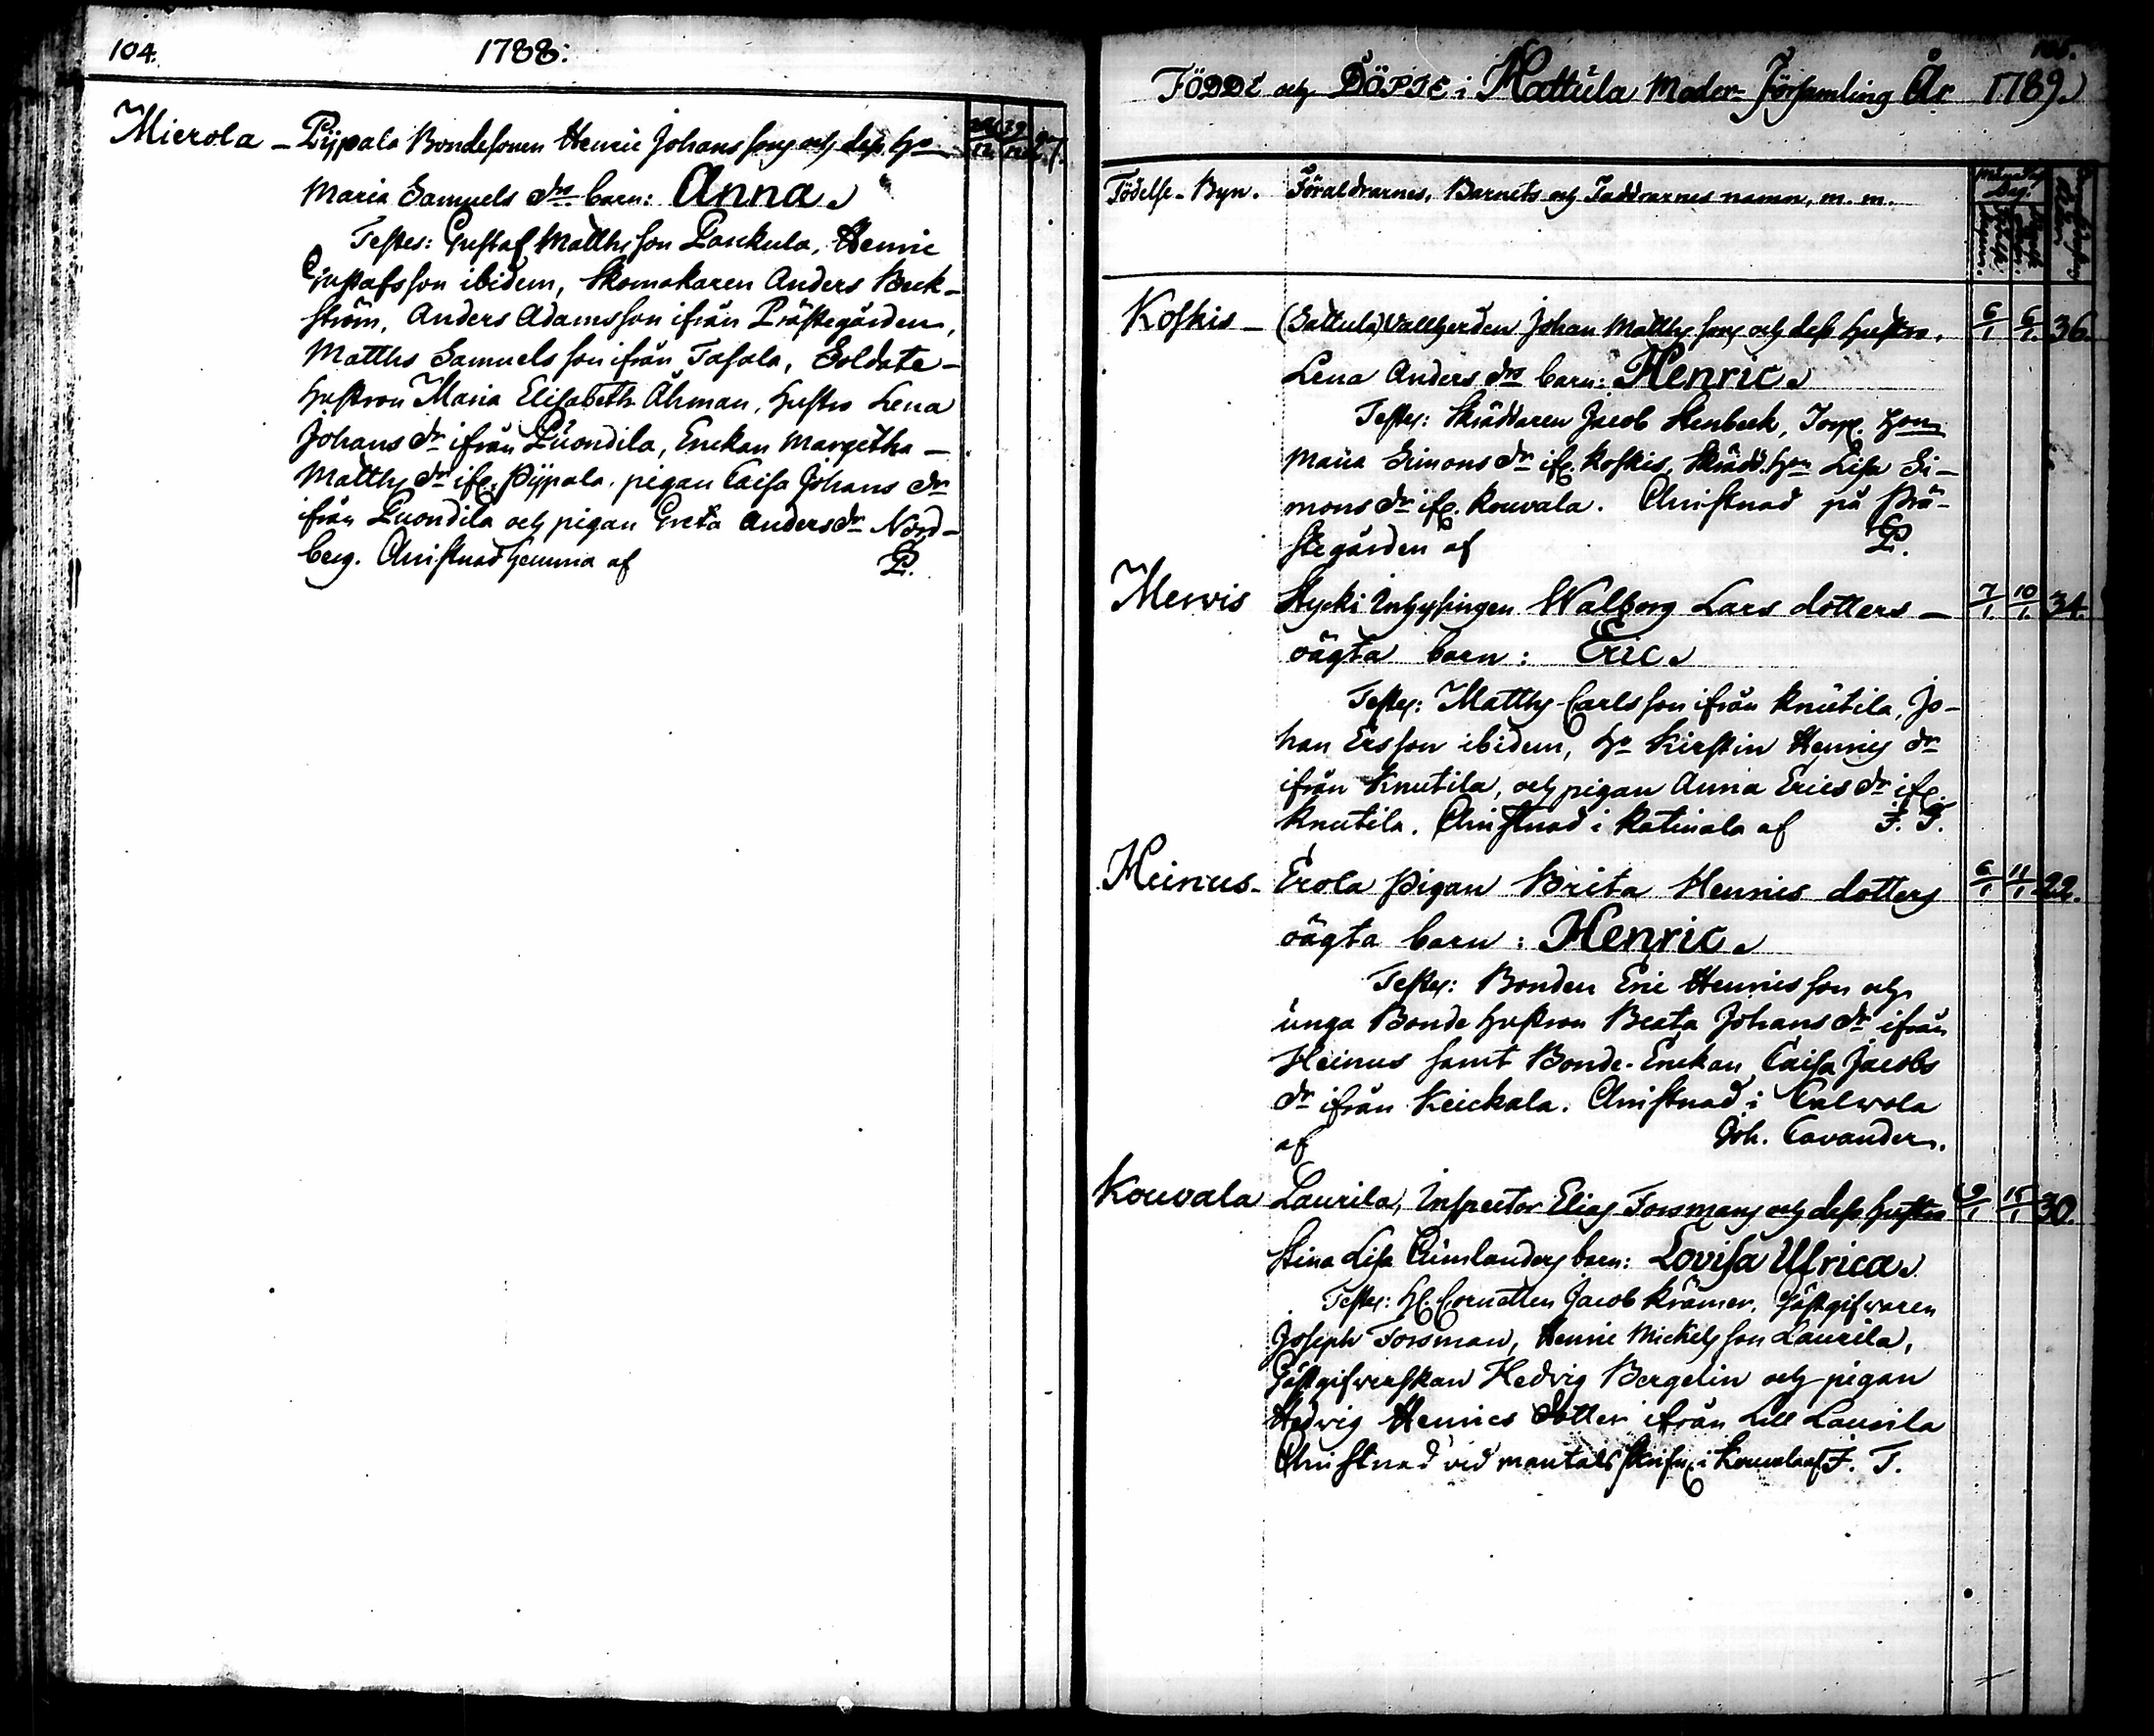 104.
1788:
Mierola — Pijpala Bondesonen Henric Johanssons och dess Ho
Maria Samuels drs barn: Anna.
Testes: Gustaf Matths son Paukula, Henric
Gustafsson ibidem, Skomakaren Anders Beck-
ström, Anders Adamsson ifrån Prästegården,
Matths Samuels son ifrån Tasala, Soldate-
hustron Maria Elisabeth Åhman, hustro Lena
Johans dr ifrån Luondila, Enckan Margetha —
Matths dr ifr. Pijpala, pigan Caisa Johans dr
ifrån Luondila och pigan Greta Anders dr Nord-
berg. Christnad hemma af P.
Födde och Döpte i Hattula Moder-Församling År 1789.
Födelse-Byn. Föräldrarnes, Barnets och Faddrarnes namn, m. m.
Koskis — (Sattula) Vallherden Johan Matths sons och dess hustro, 6/1 6/1 36.
Lena Anders drs barn: Henric.
Testes: Skräddaren Jacob Stenbeck, Torp. hon
Maria Simons dr ifr. Koskis, Skrädd. hon Lisa Si-
mons dr ifr. Kouvala. Christnad på Prä-
stegården af P.
Mervis Stycki Inhysingen Walborg Lars dotters — 7/1 10/1 34.
oägta barn: Eric.
Testes: Matths Carlsson ifrån Knutila, Jo-
han Ersson ibidem, Ho Kirstin Henrics dr
ifrån Knutila, och pigan Anna Erics dr ifr.
Knutila. Christnad i Katinala af F. T.
Heinus- Erola Pigan Brita Henrics dotters 6/1 11/1 22.
oägta barn: Henric.
Testes: Bonden Eric Henrics son och
unga Bonde hustron Beata Johans dr ifrån
Heinus samt Bonde-Enckan Caisa Jacobs
dr ifrån Keickala. Christnad i Calvola
af Joh. Cavander.
Kouvala Laurila, Inspector Elias Forsmans och dess hustro 9/1 15/1 30.
Stina Lisa barn: Lovisa Ulrica.
Testes: Hr. Cornetten Jacob Krämer, Gästgifvaren
Joseph Forsman, Henric Mickels son Laurila,
Gästgifverskan Hedvig Bergelin och pigan
Hedvig Henrics Dotter ifrån Lill Laurila
Christnad vid mantals skrifn. i Kouvala af F. T.